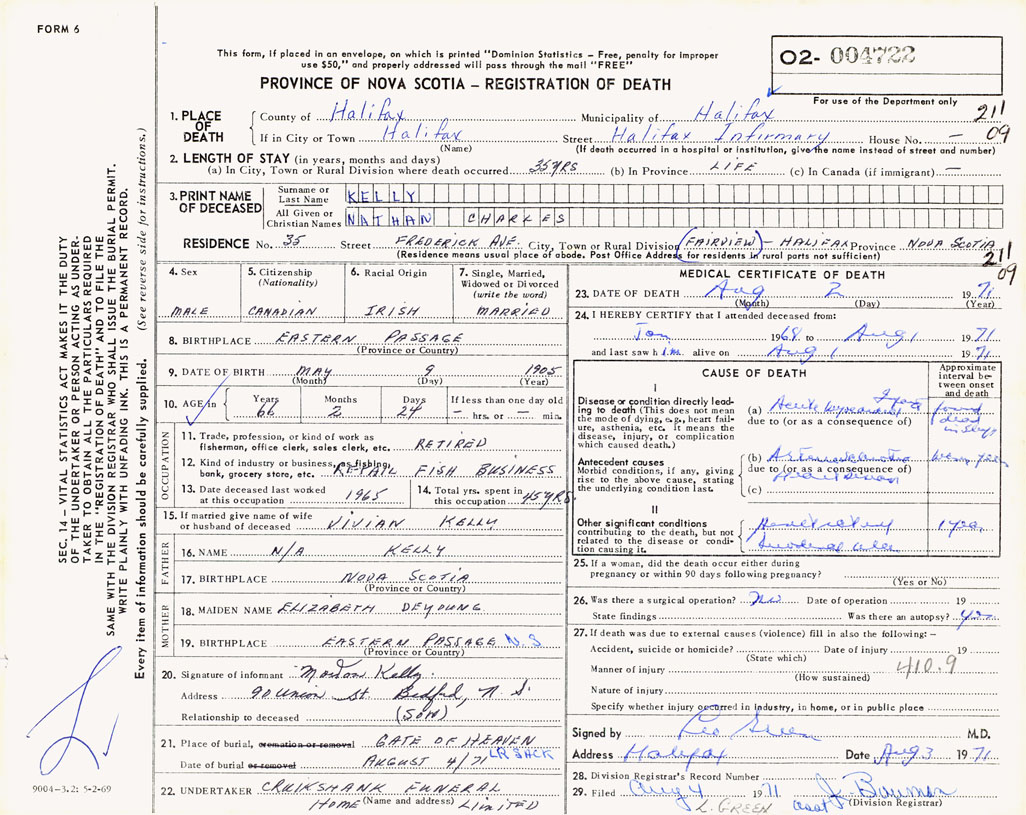 FORM 6
This form, if placed in an envelope, on which is printed "Dominion Statistics - Free, penalty for improper
use $50," and properly addressed will pass through the mail "FREE"
O2- 004722
PROVINCE OF NOVA SCOTIA - REGISTRATION OF DEATH
For use of the Department only
211
09
1. PLACE OF DEATH County of Halifax Municipality of Halifax
If in City or Town Halifax Street Halifax Infirmary House No. -
(Name) (If death occurred in a hospital or institution, give the name instead of street and number)
2. LENGTH OF STAY (in years, months and days)
(a) In City, Town or Rural Division where death occurred 35 YRS (b) In Province LIFE (c) In Canada (if immigrant) -
3. PRINT NAME OF DECEASED
Surname or Last Name KELLY
All Given or Christian Names NATHAN CHARLES
RESIDENCE No. 35 Street FREDERICK AVE. City, Town or Rural Division (FAIRVIEW) - HALIFAX Province NOVA SCOTIA
(Residence means usual place of abode. Post Office Address for residents in rural parts not sufficient)
211
09
4. Sex MALE
5. Citizenship (Nationality) CANADIAN
6. Racial Origin IRISH
7. Single, Married, Widowed or Divorced (write the word) MARRIED
8. BIRTHPLACE EASTERN PASSAGE
(Province or Country)
9. DATE OF BIRTH MAY 9 1905
(Month) (Day) (Year)
10. AGE in Years 66 Months 2 Days 24 If less than one day old - hrs. or - min.
OCCUPATION
11. Trade, profession, or kind of work as fisherman, office clerk, sales clerk, etc. RETIRED
12. Kind of industry or business, as fishing, bank, grocery store, etc. RETAIL FISH BUSINESS
13. Date deceased last worked at this occupation 1965
14. Total yrs. spent in this occupation 45 YRS.
15. If married give name of wife or husband of deceased VIVIAN KELLY
FATHER
16. NAME N/A KELLY
17. BIRTHPLACE NOVA SCOTIA
(Province or Country)
MOTHER
18. MAIDEN NAME ELIZABETH DEYOUNG
19. BIRTHPLACE EASTERN PASSAGE N.S
(Province or Country)
20. Signature of informant Morton Kelly
Address 90 Union St. Bedford, N S.
Relationship to deceased (SON)
21. Place of burial, cremation or removal GATE OF HEAVEN
LR SACK
Date of burial or removal AUGUST 4/71
22. UNDERTAKER CRUIKSHANK FUNERAL
HOME (Name and address) LIMITED
MEDICAL CERTIFICATE OF DEATH
23. DATE OF DEATH Aug 2 1971
(Month) (Day) (Year)
24. I HEREBY CERTIFY that I attended deceased from:
Jan 1968 to Aug 1 1971
and last saw him alive on Aug 1 1971
CAUSE OF DEATH
Approximate interval between onset and death
I
Disease or condition directly leading to death (This does not mean the mode of dying, e.g., heart failure, asthenia, etc. It means the disease, injury, or complication which caused death.)
(a) Acute
due to (or as a consequence of)
found dead in sleep
Antecedent causes
Morbid conditions, if any, giving rise to the above cause, stating the underlying condition last.
(b)
due to (or as a consequence of)
(c)
II
Other significant conditions contributing to the death, but not related to the disease or condition causing it.
25. If a woman, did the death occur either during
pregnancy or within 90 days following pregnancy?
(Yes or No)
26. Was there a surgical operation? No Date of operation 19
State findings Was there an autopsy?
27. If death was due to external causes (violence) fill in also the following: -
Accident, suicide or homicide? Date of injury 19
(State which)
Manner of injury 410.9
(How sustained)
Nature of injury
Specify whether injury occurred in industry, in home, or in public place
Signed by Leo Green M.D.
Address Halifax Date Aug 3 1971
28. Division Registrar's Record Number
29. Filed Aug 4 1971 J. Bauman
L. GREEN asst (Division Registrar)
SEC. 14 - VITAL STATISTICS ACT MAKES IT THE DUTY
OF THE UNDERTAKER OR PERSON ACTING AS UNDER-
TAKER TO OBTAIN ALL THE PARTICULARS REQUIRED
IN THE "REGISTRATION OF DEATH" AND TO FILE THE
SAME WITH THE DIVISION REGISTRAR WHO SHALL ISSUE THE BURIAL PERMIT.
WRITE PLAINLY WITH UNFADING INK. THIS IS A PERMANENT RECORD.
Every item of information should be carefully supplied. (See reverse side for instructions.)
9004-3.2: 5-2-69